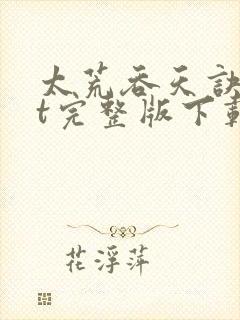 太荒吞天诀
t完整版下载
花浮萍